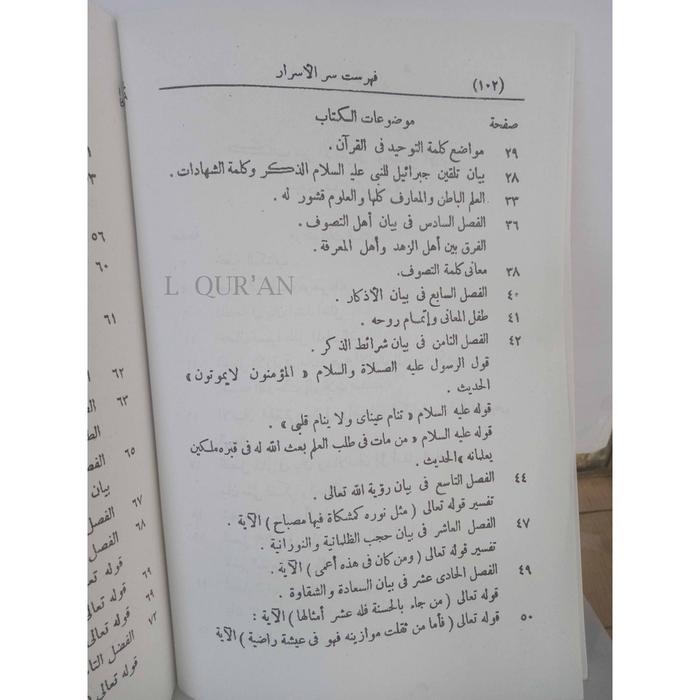 (١٠٢) فهرست سر الأسرار
صفحة موضوعات الكتاب
٢٩ مواضع كلمة التوحيد فى القرآن .
٢٨ بيان تلقين جبرائيل للنبى عليه السلام الذكر وكلمة الشهادات .
٣٣ العلم الباطن والمعارف كلها والعلوم قشور له .
٣٦ الفصل السادس فى بيان أهل التصوف .
الفرق بين أهل الزهد وأهل المعرفة .
٣٨ معانى كلمة التصوف.
L QUR'AN
٤٠ الفصل السابع فى بيان الأذكار .
٤١ طفل المعانى وإتمام روحه .
٤٢ الفصل الثامن فى بيان شرائط الذكر .
قول الرسول عليه الصلاة والسلام « المؤمنون لايموتون»
الحديث .
قوله عليه السلام « تنام عيناى ولا ينام قلبى » .
قوله عليه السلام « من مات فى طلب العلم بعث الله له فى قبره ملكين
يعلمانه » الحديث .
٤٤ الفصل التاسع فى بيان رؤية الله تعالى .
تفسير قوله تعالى ( مثل نوره كمشكاة فيها مصباح ) الآية .
٤٧ الفصل العاشر فى بيان حجب الظلمانية والنورانية .
تفسير قوله تعالى ( ومن كان فى هذه أعمى ) الآية .
٤٩ الفصل الحادى عشر فى بيان السعادة والشقاوة .
قوله تعالى ( من جاء بالحسنة فله عشر أمثالها ) الآية :
٥٠ قوله تعالى ( فأما من ثقلت موازينه فهو فى عيشة راضية ) الآية
٥٦
٦٠
٦١
٦٢
٦٣
٦٥
بيان
٦٧ الفصل
٦٨ الفصل
قوله
٦٩ قوله تعالى
٦٩ قوله تعالى
٧٢ الفصل
قوله تعالى